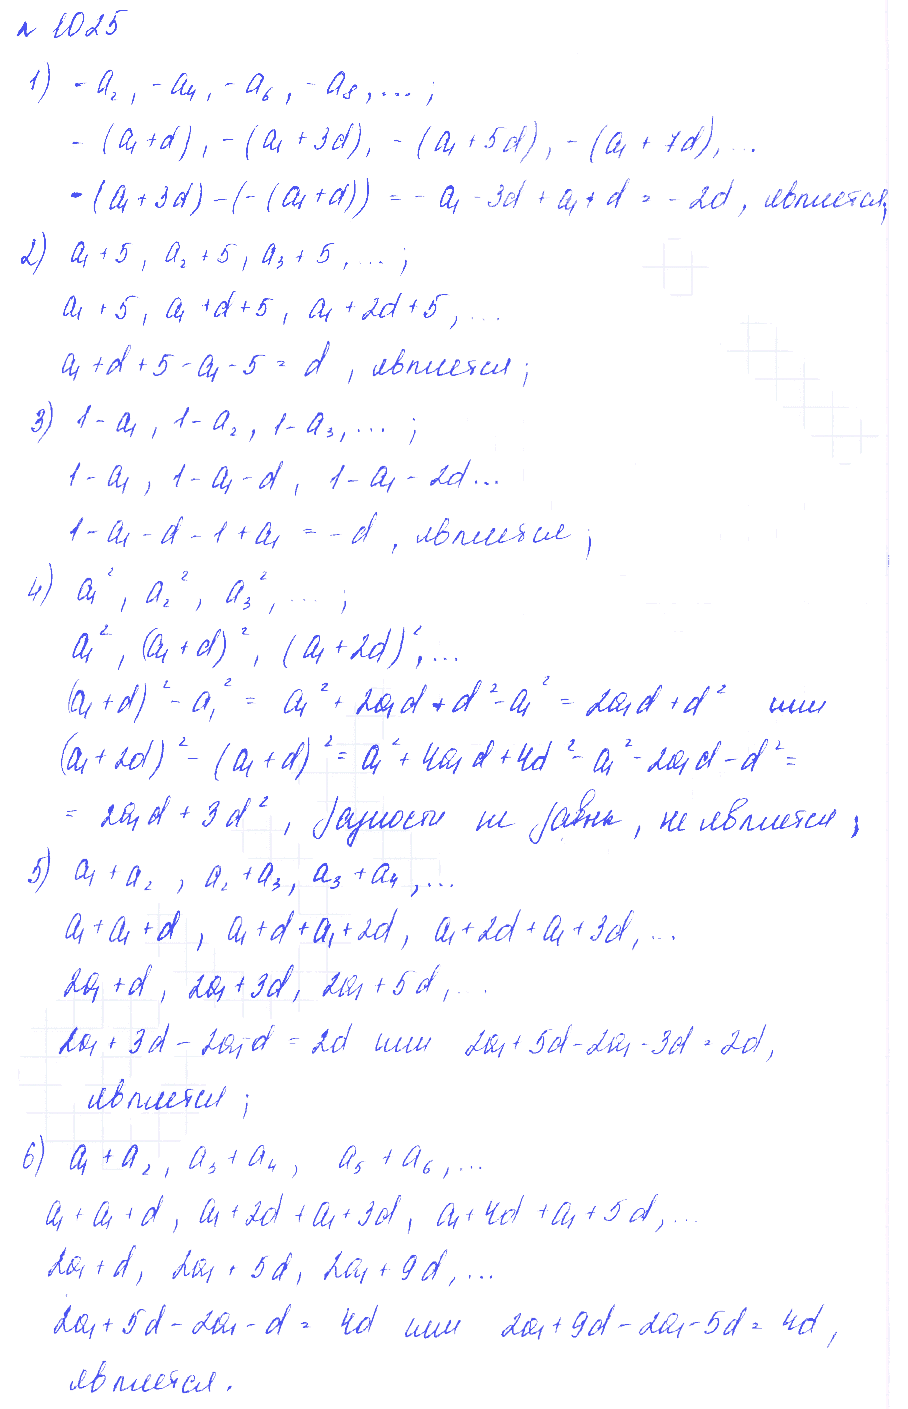 № 1025
1) -a₂, -a₄, -a₆, -a₈, ... ;
- (a₁+d), -(a₁+3d), -(a₁+5d), -(a₁+7d), ...
-(a₁+3d)-(-(a₁+d)) = -a₁-3d+a₁+d = -2d, является;
2) a₁+5, a₂+5, a₃+5, ... ;
a₁+5, a₁+d+5, a₁+2d+5, ...
a₁+d+5-a₁-5 = d, является;
3) 1-a₁, 1-a₂, 1-a₃, ... ;
1-a₁, 1-a₁-d, 1-a₁-2d...
1-a₁-d-1+a₁ = -d, является;
4) a₁², a₂², a₃², ... ;
a₁², (a₁+d)², (a₁+2d)², ...
(a₁+d)²-a₁² = a₁²+2a₁d+d²-a₁² = 2a₁d+d² или
(a₁+2d)²-(a₁+d)² = a₁²+4a₁d+4d²-a₁²-2a₁d-d² =
= 2a₁d+3d², разности не равны, не является;
5) a₁+a₂, a₂+a₃, a₃+a₄, ...
a₁+a₁+d, a₁+d+a₁+2d, a₁+2d+a₁+3d, ...
2a₁+d, 2a₁+3d, 2a₁+5d, ...
2a₁+3d-2a₁-d = 2d или 2a₁+5d-2a₁-3d = 2d,
является;
6) a₁+a₂, a₃+a₄, a₅+a₆, ...
a₁+a₁+d, a₁+2d+a₁+3d, a₁+4d+a₁+5d, ...
2a₁+d, 2a₁+5d, 2a₁+9d, ...
2a₁+5d-2a₁-d = 4d или 2a₁+9d-2a₁-5d = 4d,
является.